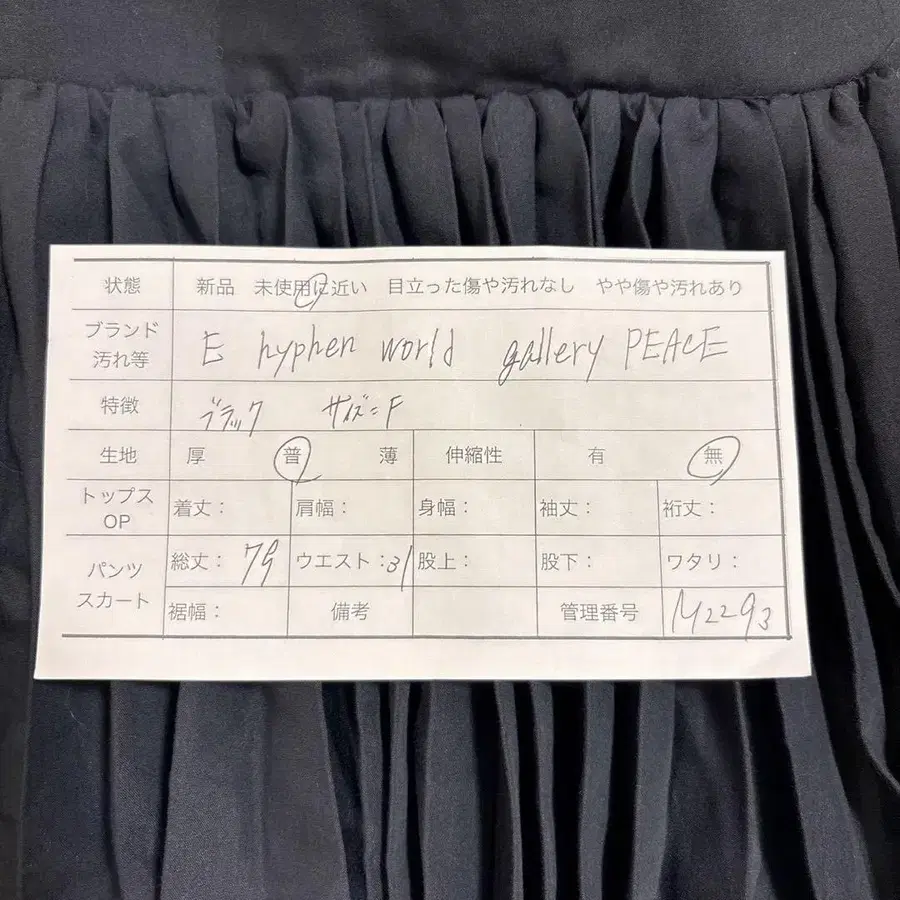 状態 新品 未使用に近い 目立った傷や汚れなし やや傷や汚れあり
ブランド
汚れ等 E hyphen world gallery PEACE
特徴 ブラック サイズ=F
生地 厚 普 薄 伸縮性 有 無
トップス
OP 着丈: 肩幅: 身幅: 袖丈: 裄丈:
パンツ
スカート
総丈: 79 ウエスト:31 股上: 股下: ワタリ:
裾幅: 備考 管理番号 M2293